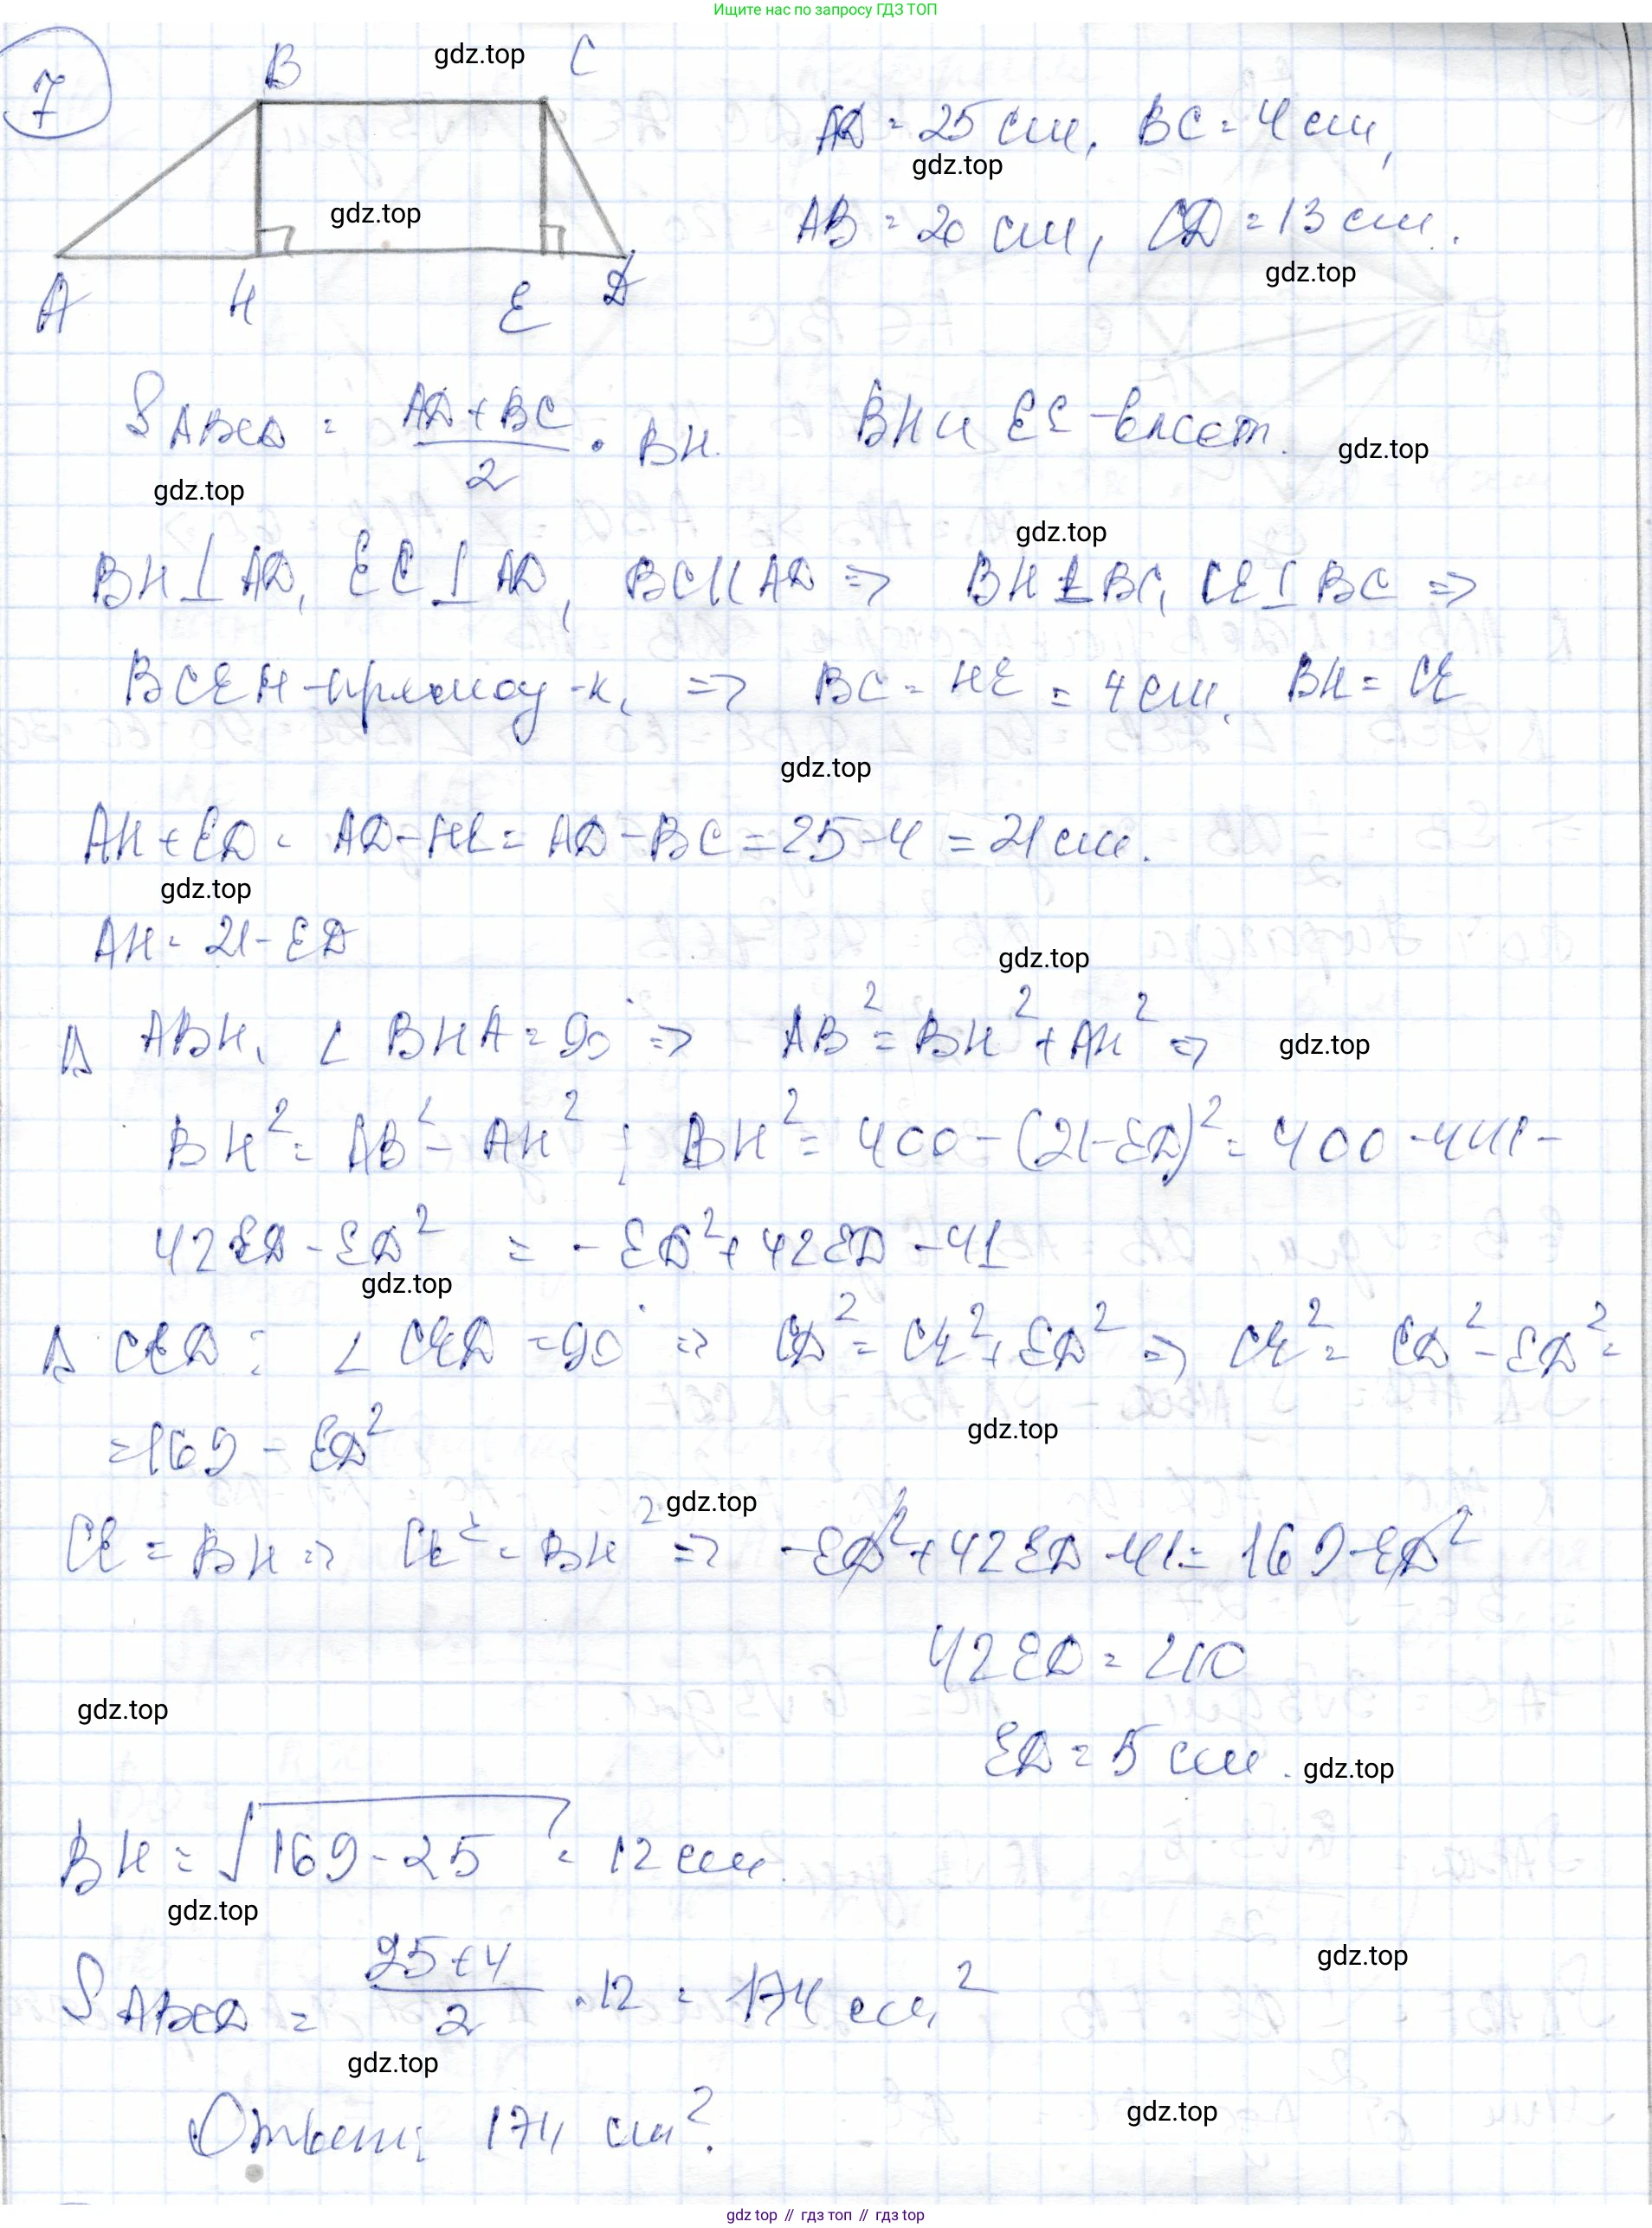 Ищите нас по запросу ГДЗ ТОП
7
B gdz.top C
AD = 25 см, BC = 4 см,
gdz.top
gdz.top
AB = 20 см, CD = 13 см.
gdz.top
A H E D
S ABCD = (AD + BC)/2 · BH. BH и EC – высот.
gdz.top
gdz.top
gdz.top
BH ⊥ AD, EC ⊥ AD, BC || AD => BH ⊥ BC, CE ⊥ BC =>
BCEH – прямоу-к, => BC = HE = 4 см, BH = CE
gdz.top
AH + ED = AD – HE = AD – BC = 25 – 4 = 21 см.
gdz.top
AH = 21 – ED
gdz.top
Δ ABH, ∠ BHA = 90° => AB² = BH² + AH² =>
gdz.top
BH² = AB² – AH²; BH² = 400 – (21 – ED)² = 400 – 441 –
42ED – ED² = – ED² + 42ED – 41
gdz.top
Δ CED: ∠ CED = 90° => CD² = CE² + ED² => CE² = CD² – ED² =
= 169 – ED²
gdz.top
gdz.top
CE = BH => CE² = BH² => –ED² + 42ED – 41 = 169 – ED²
42ED = 210
gdz.top
ED = 5 см.
gdz.top
BH = √(169 – 25) = 12 см.
gdz.top
gdz.top
S ABCD = (25 + 4)/2 · 12 = 174 см²
gdz.top
gdz.top
Ответ: 174 см².
gdz.top // гдз топ // гдз.top